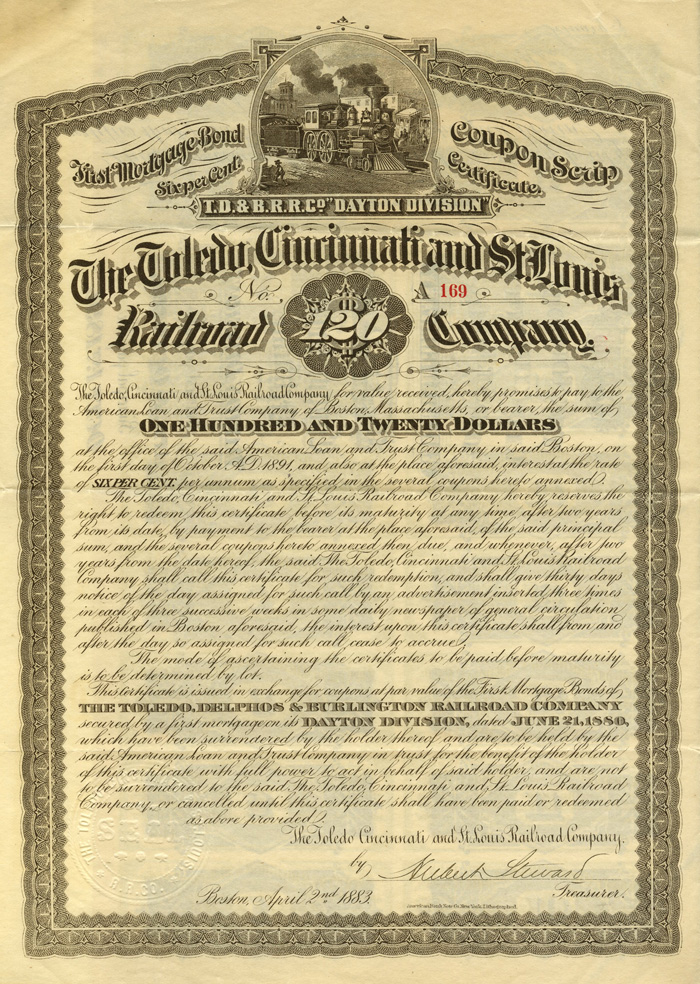 First Mortgage Bond
Six per Cent.
Coupon Scrip
Certificate.
T.D. & B.R.R. Co. "DAYTON DIVISION"
The Toledo, Cincinnati and St. Louis
No. A 169
Railroad 120 Company.
The Toledo, Cincinnati and St. Louis Railroad Company for value received, hereby promises to pay to the
American Loan and Trust Company of Boston, Massachusetts, or bearer, the sum of
ONE HUNDRED AND TWENTY DOLLARS
at the office of the said American Loan and Trust Company in said Boston, on
the first day of October A.D. 1891, and also at the place aforesaid, interest at the rate
of SIX PER CENT. per annum as specified in the several coupons hereto annexed.
The Toledo, Cincinnati and St. Louis Railroad Company hereby reserves the
right to redeem this certificate before its maturity at any time after two years
from its date, by payment to the bearer at the place aforesaid, of the said principal
sum, and the several coupons hereto annexed then due, and whenever, after two
years from the date hereof, the said The Toledo, Cincinnati and St. Louis Railroad
Company shall call this certificate for such redemption, and shall give thirty days
notice of the day assigned for such call by an advertisement inserted three times
in each of three successive weeks in some daily newspaper of general circulation
published in Boston aforesaid, the interest upon this certificate shall from and
after the day so assigned for such call, cease to accrue.
The mode of ascertaining the certificates to be paid before maturity
is to be determined by lot.
This Certificate is issued in exchange for coupons at par value of the First Mortgage Bonds of
THE TOLEDO, DELPHOS & BURLINGTON RAILROAD COMPANY
secured by a first mortgage on its DAYTON DIVISION, dated JUNE 21, 1880,
which have been surrendered by the holder thereof and are to be held by the
said American Loan and Trust Company in trust for the benefit of the holder
of this certificate with full power to act in behalf of said holder, and are not
to be surrendered to the said The Toledo, Cincinnati and St. Louis Railroad
Company, or cancelled until this certificate shall have been paid or redeemed
as above provided.
The Toledo Cincinnati and St. Louis Railroad Company.
by Steward
Treasurer.
Boston, April 2nd 1883.
American Bank Note Co. New York.
SEAL
R.R. CO.